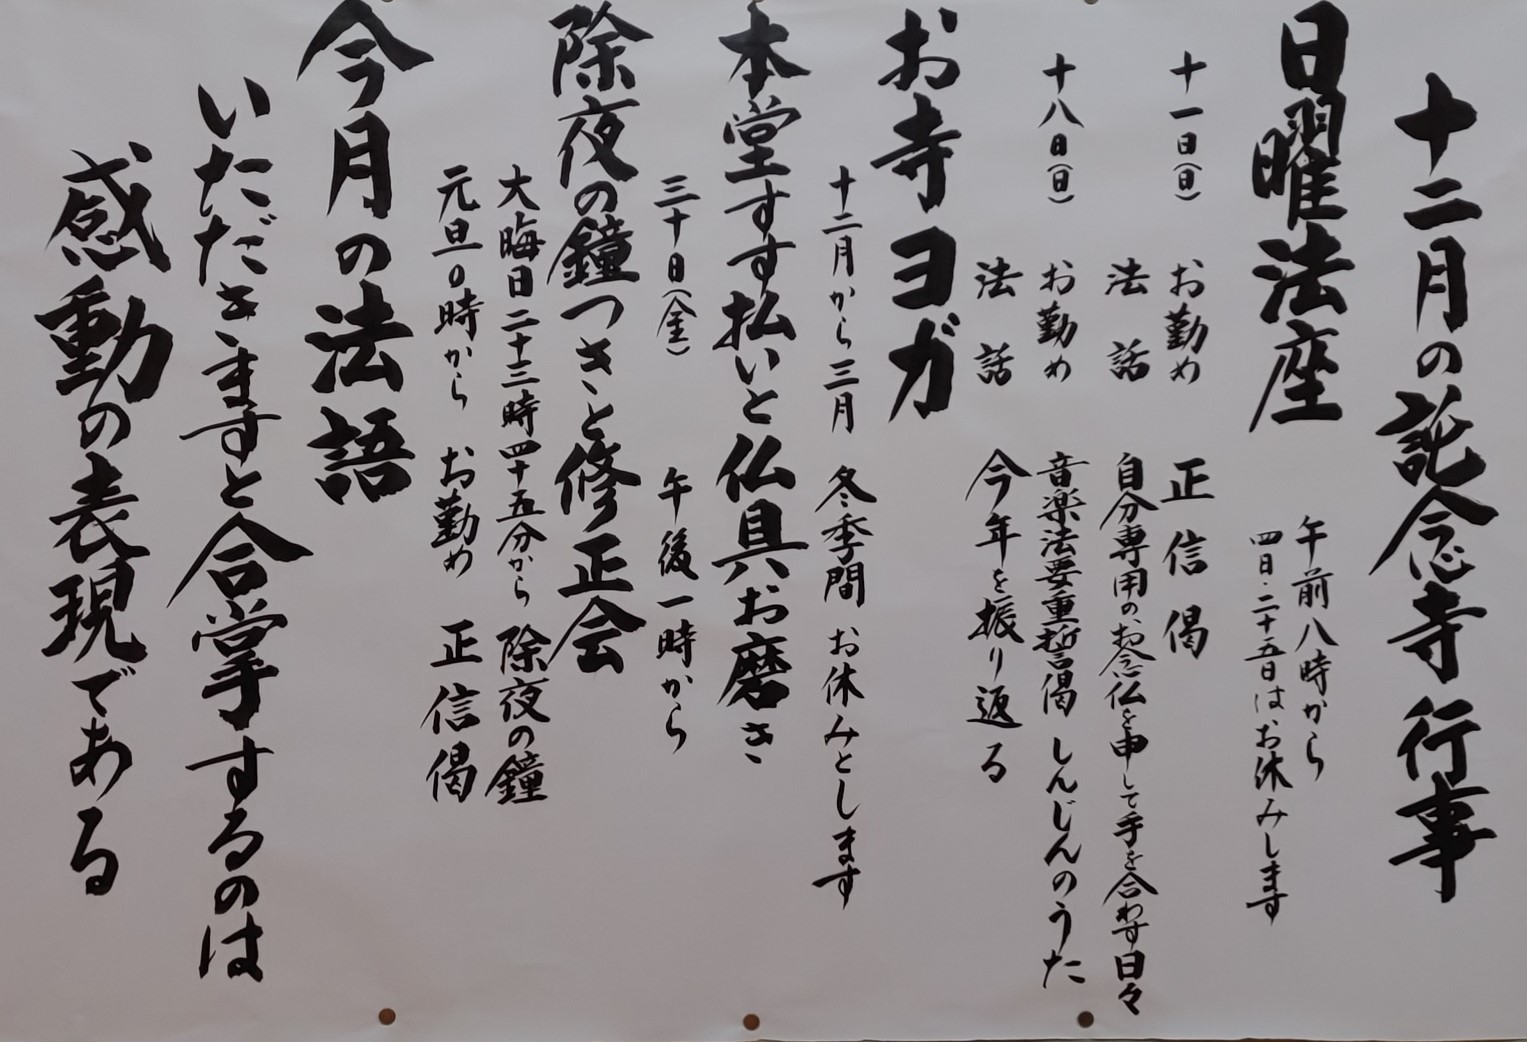 十二月の託念寺行事
日曜法座
午前八時から
四日・二十五日はお休みします
十一日(日) お勤め 正信偈
法話 自分専用のお念仏を申して手を合わす日々
十八日(日) お勤め 音楽法要重誓偈 しんじんのうた
法話 今年を振り返る
お寺ヨガ
十二月から三月 冬季間 お休みとします
本堂すす払いと仏具お磨き
三十日(金) 午後一時から
除夜の鐘つきと修正会
大晦日二十三時四十五分から 除夜の鐘
元旦0時から お勤め 正信偈
今月の法語
いただきますと合掌するのは
感動の表現である